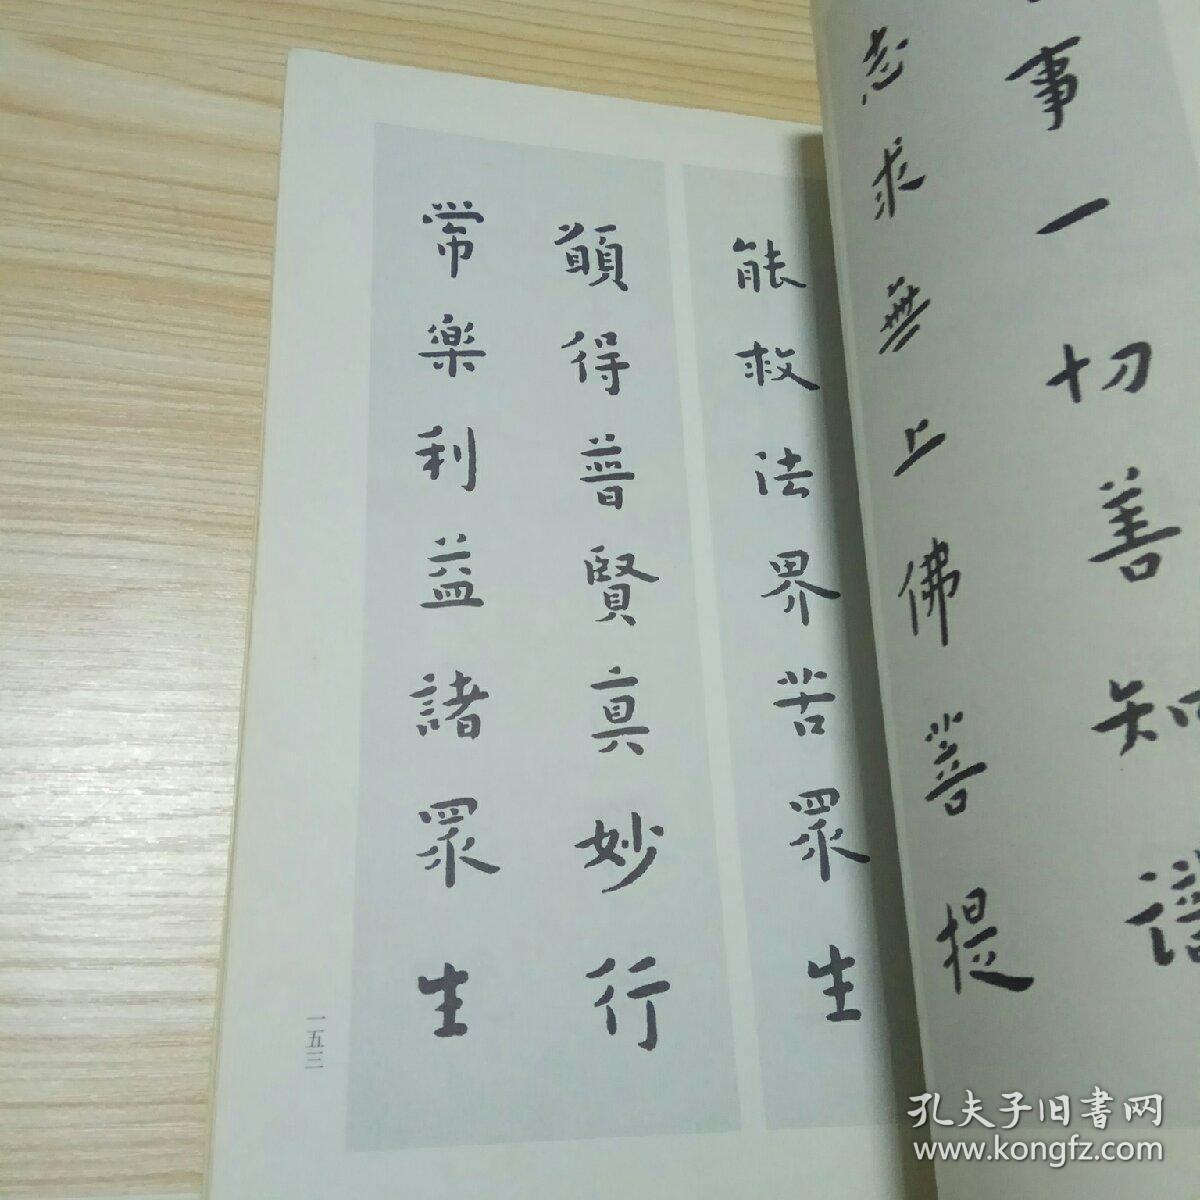 事一切善知
志求無上佛菩提
能救法界苦眾生
願得普賢真妙行
常樂利益諸眾生
一五三
孔夫子旧書网
www.kongfz.com